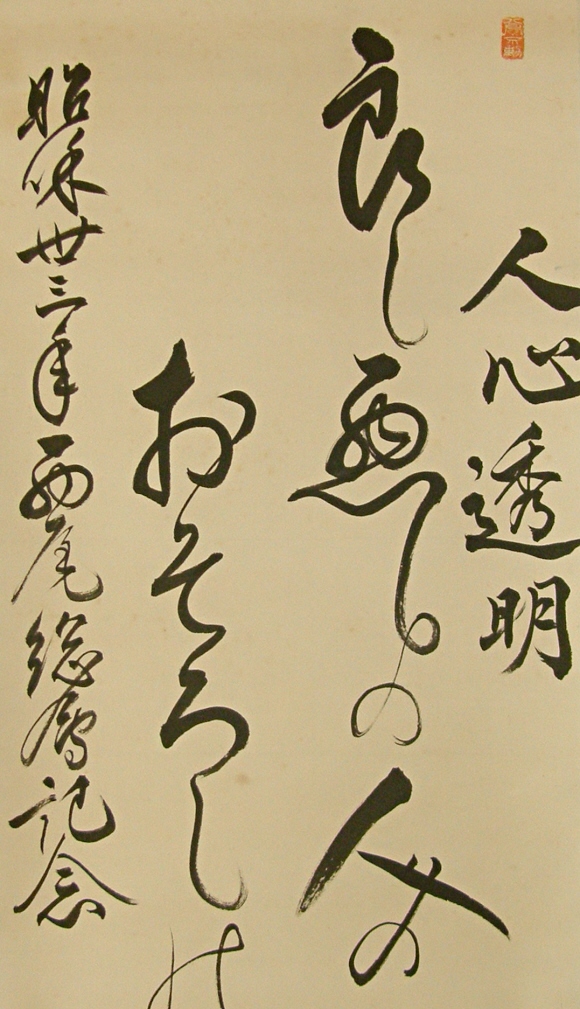 人心透明
良し悪しの人の
おそろし
昭和丗三年西尾総
記念